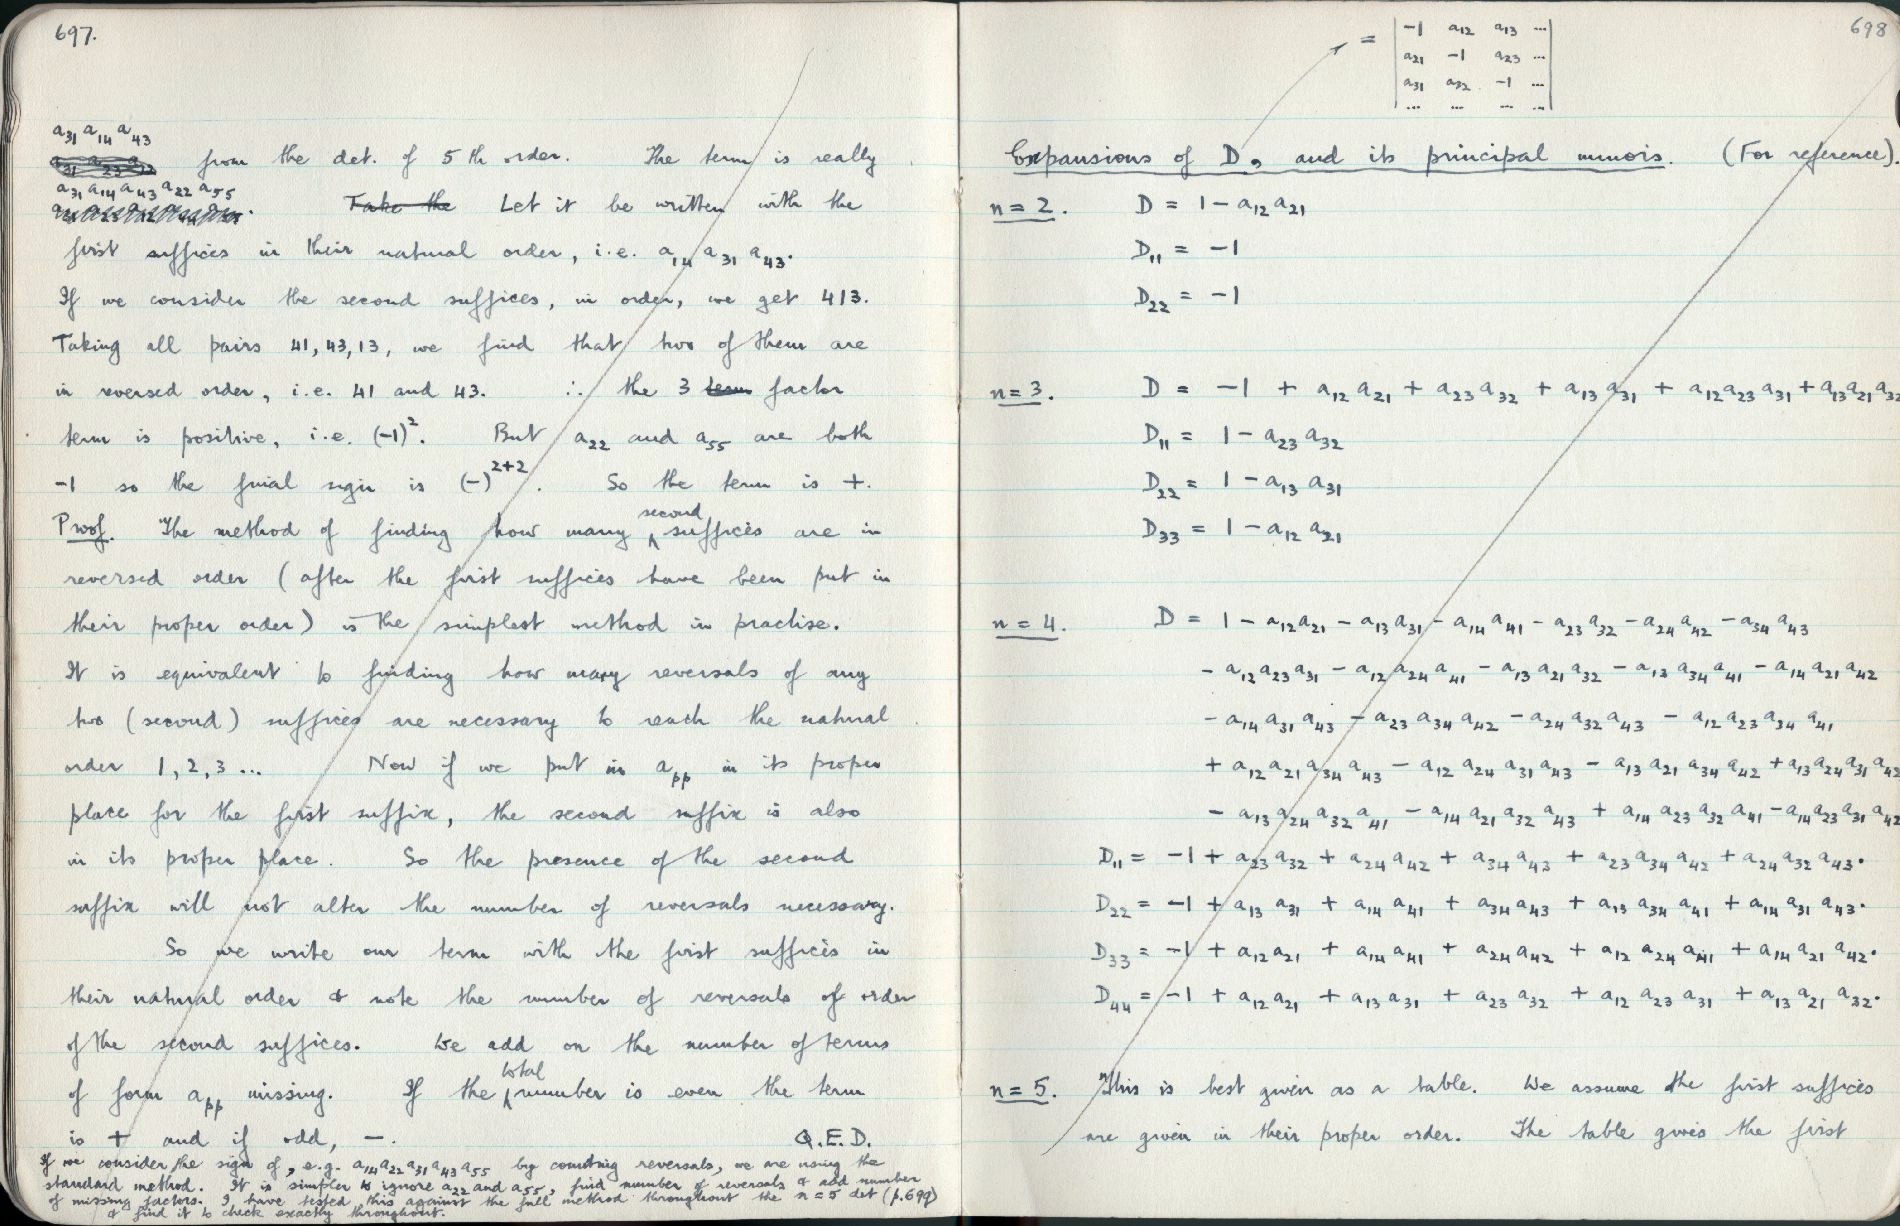 697.
a₃₁ a₁₄ a₄₃
from the det. of 5th order. The term is really
a₃₁ a₁₄ a₄₃ a₂₂ a₅₅
. Take the Let it be written with the
first suffices in their natural order, i.e. a₁₄ a₃₁ a₄₃.
If we consider the second suffices, in order, we get 413.
Taking all pairs 41, 43, 13, we find that two of them are
in reversed order, i.e. 41 and 43. ∴ the 3 term factor
term is positive, i.e. (-1)². But a₂₂ and a₅₅ are both
-1 so the final sign is (-)²⁺². So the term is +.
Proof. The method of finding how many second suffices are in
reversed order (after the first suffices have been put in
their proper order) is the simplest method in practise.
It is equivalent to finding how many reversals of any
two (second) suffices are necessary to reach the natural
order 1, 2, 3 ... Now if we put in aₚₚ in its proper
place for the first suffix, the second suffix is also
in its proper place. So the presence of the second
suffix will not alter the number of reversals necessary.
So we write our term with the first suffices in
their natural order & note the number of reversals of order
of the second suffices. We add on the number of terms
of form aₚₚ missing. If the total number is even the term
is + and if odd, -. Q.E.D.
If we consider the sign of, e.g. a₁₄ a₂₂ a₃₁ a₄₃ a₅₅ by counting reversals, we are using the
standard method. It is simpler to ignore a₂₂ and a₅₅, find number of reversals & add number
of missing factors. I have tested this against the full method throughout the n=5 det (p.699)
& find it to check exactly throughout.
698
= | -1 a₁₂ a₁₃ ... |
| a₂₁ -1 a₂₃ ... |
| a₃₁ a₃₂ -1 ... |
| ... ... ... ... |
Expansions of D, and its principal minors. (For reference).
n=2. D = 1 - a₁₂ a₂₁
D₁₁ = -1
D₂₂ = -1
n=3. D = -1 + a₁₂ a₂₁ + a₂₃ a₃₂ + a₁₃ a₃₁ + a₁₂ a₂₃ a₃₁ + a₁₃ a₂₁ a₃₂
D₁₁ = 1 - a₂₃ a₃₂
D₂₂ = 1 - a₁₃ a₃₁
D₃₃ = 1 - a₁₂ a₂₁
n=4. D = 1 - a₁₂ a₂₁ - a₁₃ a₃₁ - a₁₄ a₄₁ - a₂₃ a₃₂ - a₂₄ a₄₂ - a₃₄ a₄₃
- a₁₂ a₂₃ a₃₁ - a₁₂ a₂₄ a₄₁ - a₁₃ a₂₁ a₃₂ - a₁₃ a₃₄ a₄₁ - a₁₄ a₂₁ a₄₂
- a₁₄ a₃₁ a₄₃ - a₂₃ a₃₄ a₄₂ - a₂₄ a₃₂ a₄₃ - a₁₂ a₂₃ a₃₄ a₄₁
+ a₁₂ a₂₁ a₃₄ a₄₃ - a₁₂ a₂₄ a₃₁ a₄₃ - a₁₃ a₂₁ a₃₄ a₄₂ + a₁₃ a₂₄ a₃₁ a₄₂
- a₁₃ a₂₄ a₃₂ a₄₁ - a₁₄ a₂₁ a₃₂ a₄₃ + a₁₄ a₂₃ a₃₂ a₄₁ - a₁₄ a₂₃ a₃₁ a₄₂
D₁₁ = -1 + a₂₃ a₃₂ + a₂₄ a₄₂ + a₃₄ a₄₃ + a₂₃ a₃₄ a₄₂ + a₂₄ a₃₂ a₄₃.
D₂₂ = -1 + a₁₃ a₃₁ + a₁₄ a₄₁ + a₃₄ a₄₃ + a₁₃ a₃₄ a₄₁ + a₁₄ a₃₁ a₄₃.
D₃₃ = -1 + a₁₂ a₂₁ + a₁₄ a₄₁ + a₂₄ a₄₂ + a₁₂ a₂₄ a₄₁ + a₁₄ a₂₁ a₄₂.
D₄₄ = -1 + a₁₂ a₂₁ + a₁₃ a₃₁ + a₂₃ a₃₂ + a₁₂ a₂₃ a₃₁ + a₁₃ a₂₁ a₃₂.
n=5. This is best given as a table. We assume the first suffices
are given in their proper order. The table gives the first